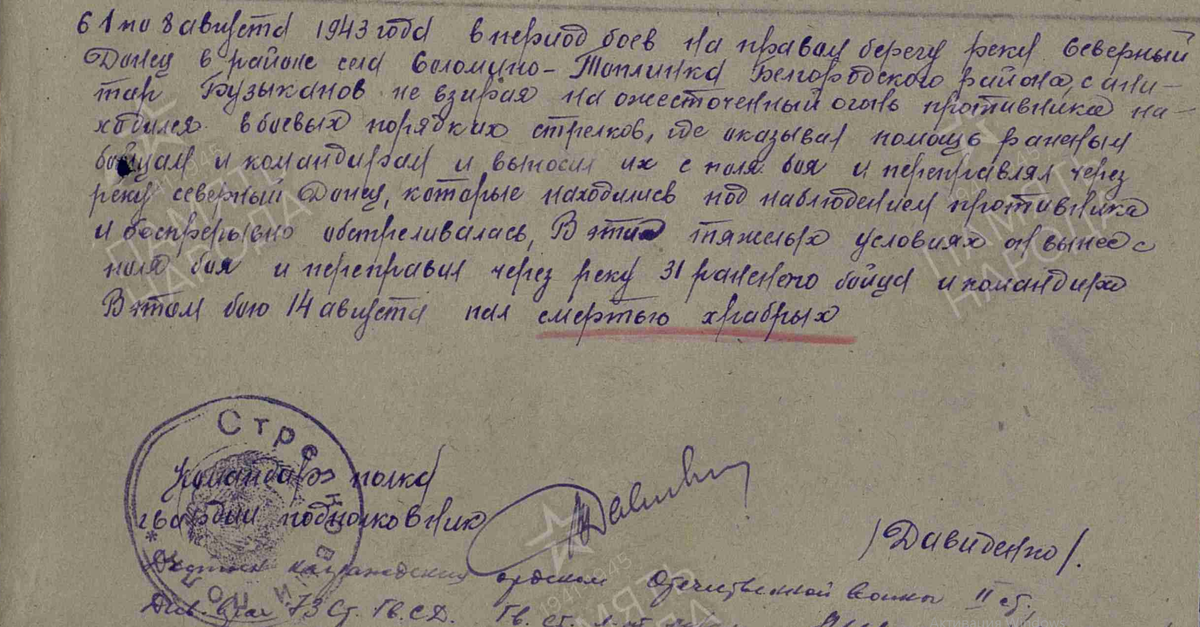 б 1 по 8 августа 1943 года в период боев на правом берегу реки Северный
Донец в районе села Соломино-Топлинка Белгородского района, сани-
тар Бузыканов не взирая на ожесточенный огонь противника на-
ходился в боевых порядках стрелков, где оказывал помощь раненым
бойцам и командирам и выносил их с поля боя и переправлял через
реку северный Донец, которые находились под наблюдением противника
и беспрерывно обстреливалась, В этих тяжелых условиях он вынес с
поля боя и переправил через реку 31 раненого бойца и командира
В этом бою 14 августа пал смертью храбрых
Стрелковый полк
Командир полка
гвардии подполковник
/Давиденко/.
Достоин награждения орденом Отечественной войны II ст.
Див. врач 73 Ст. Гв. С.Д. Гв. ст.
ПАМЯТЬ
НАРОДА
1941-1945